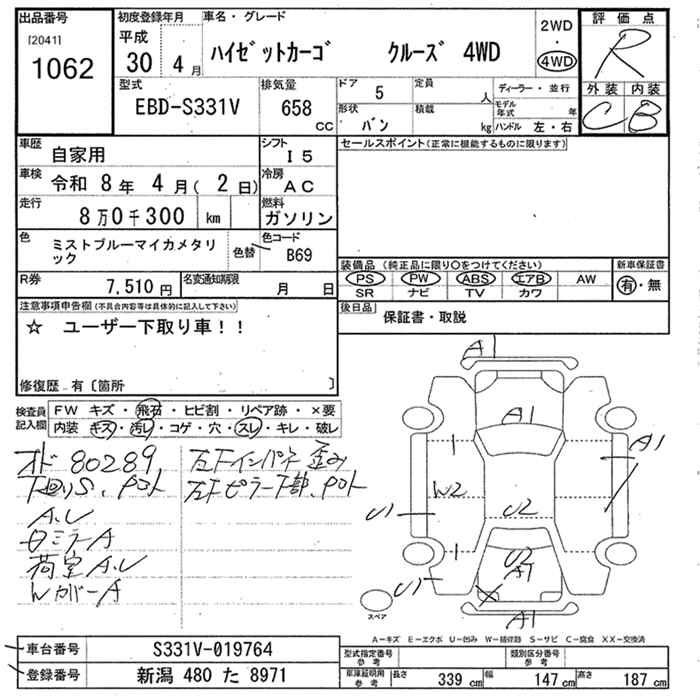 出品番号
[2041]
1062
初度登録年月
平成
30 4 月
車名・グレード
ハイゼットカーゴ クルーズ 4WD
2WD
・
4WD
評価点
R
外装 内装
C B
型式
EBD-S331V
排気量
658
CC
ドア 5
定員 人
形状 バン
積載 kg
ディーラー・並行
モデル年式 年
ハンドル 左・右
車歴
自家用
シフト
I5
車検
令和 8 年 4 月 ( 2 日)
冷房
AC
走行
8 万 0 千 300 km
燃料
ガソリン
色
ミストブルーマイカメタリック
色替
色コード
B69
R券
7,510 円
名変通知期限
月 日
セールスポイント(正常に機能するものに限ります)
装備品 (純正品に限り○をつけてください)
新車保証書
PS PW ABS エアB AW
SR ナビ TV カワ
有・無
後日品
保証書・取説
注意事項申告欄(不具合内容等は具体的に記入して下さい)
☆ ユーザー下取り車!!
修復歴 有〔箇所 〕
検査員記入欄
FW キズ・飛石・ヒビ割・リペア跡・×要
内装 キズ・汚レ・コゲ・穴・スレ・キレ・破レ
オド 80289
下回りS、P.コト
A.U
ロミラーA
荷室A.U
Wカバ-A
左下インパネ 歪み
左下ピラー下部、P.コト
A1
A1
A1
1
W2
U1
U2
U2
A7
1
U1
A1
スペア
A-キズ E-エクボ U-凹み W-補修跡 S-サビ C-腐食 XX-交換済
車台番号
S331V-019764
登録番号
新潟 480 た 8971
型式指定番号
参考
類別区分番号
参考
車庫証明用
参考
長さ 339 cm 幅 147 cm 高さ 187 cm